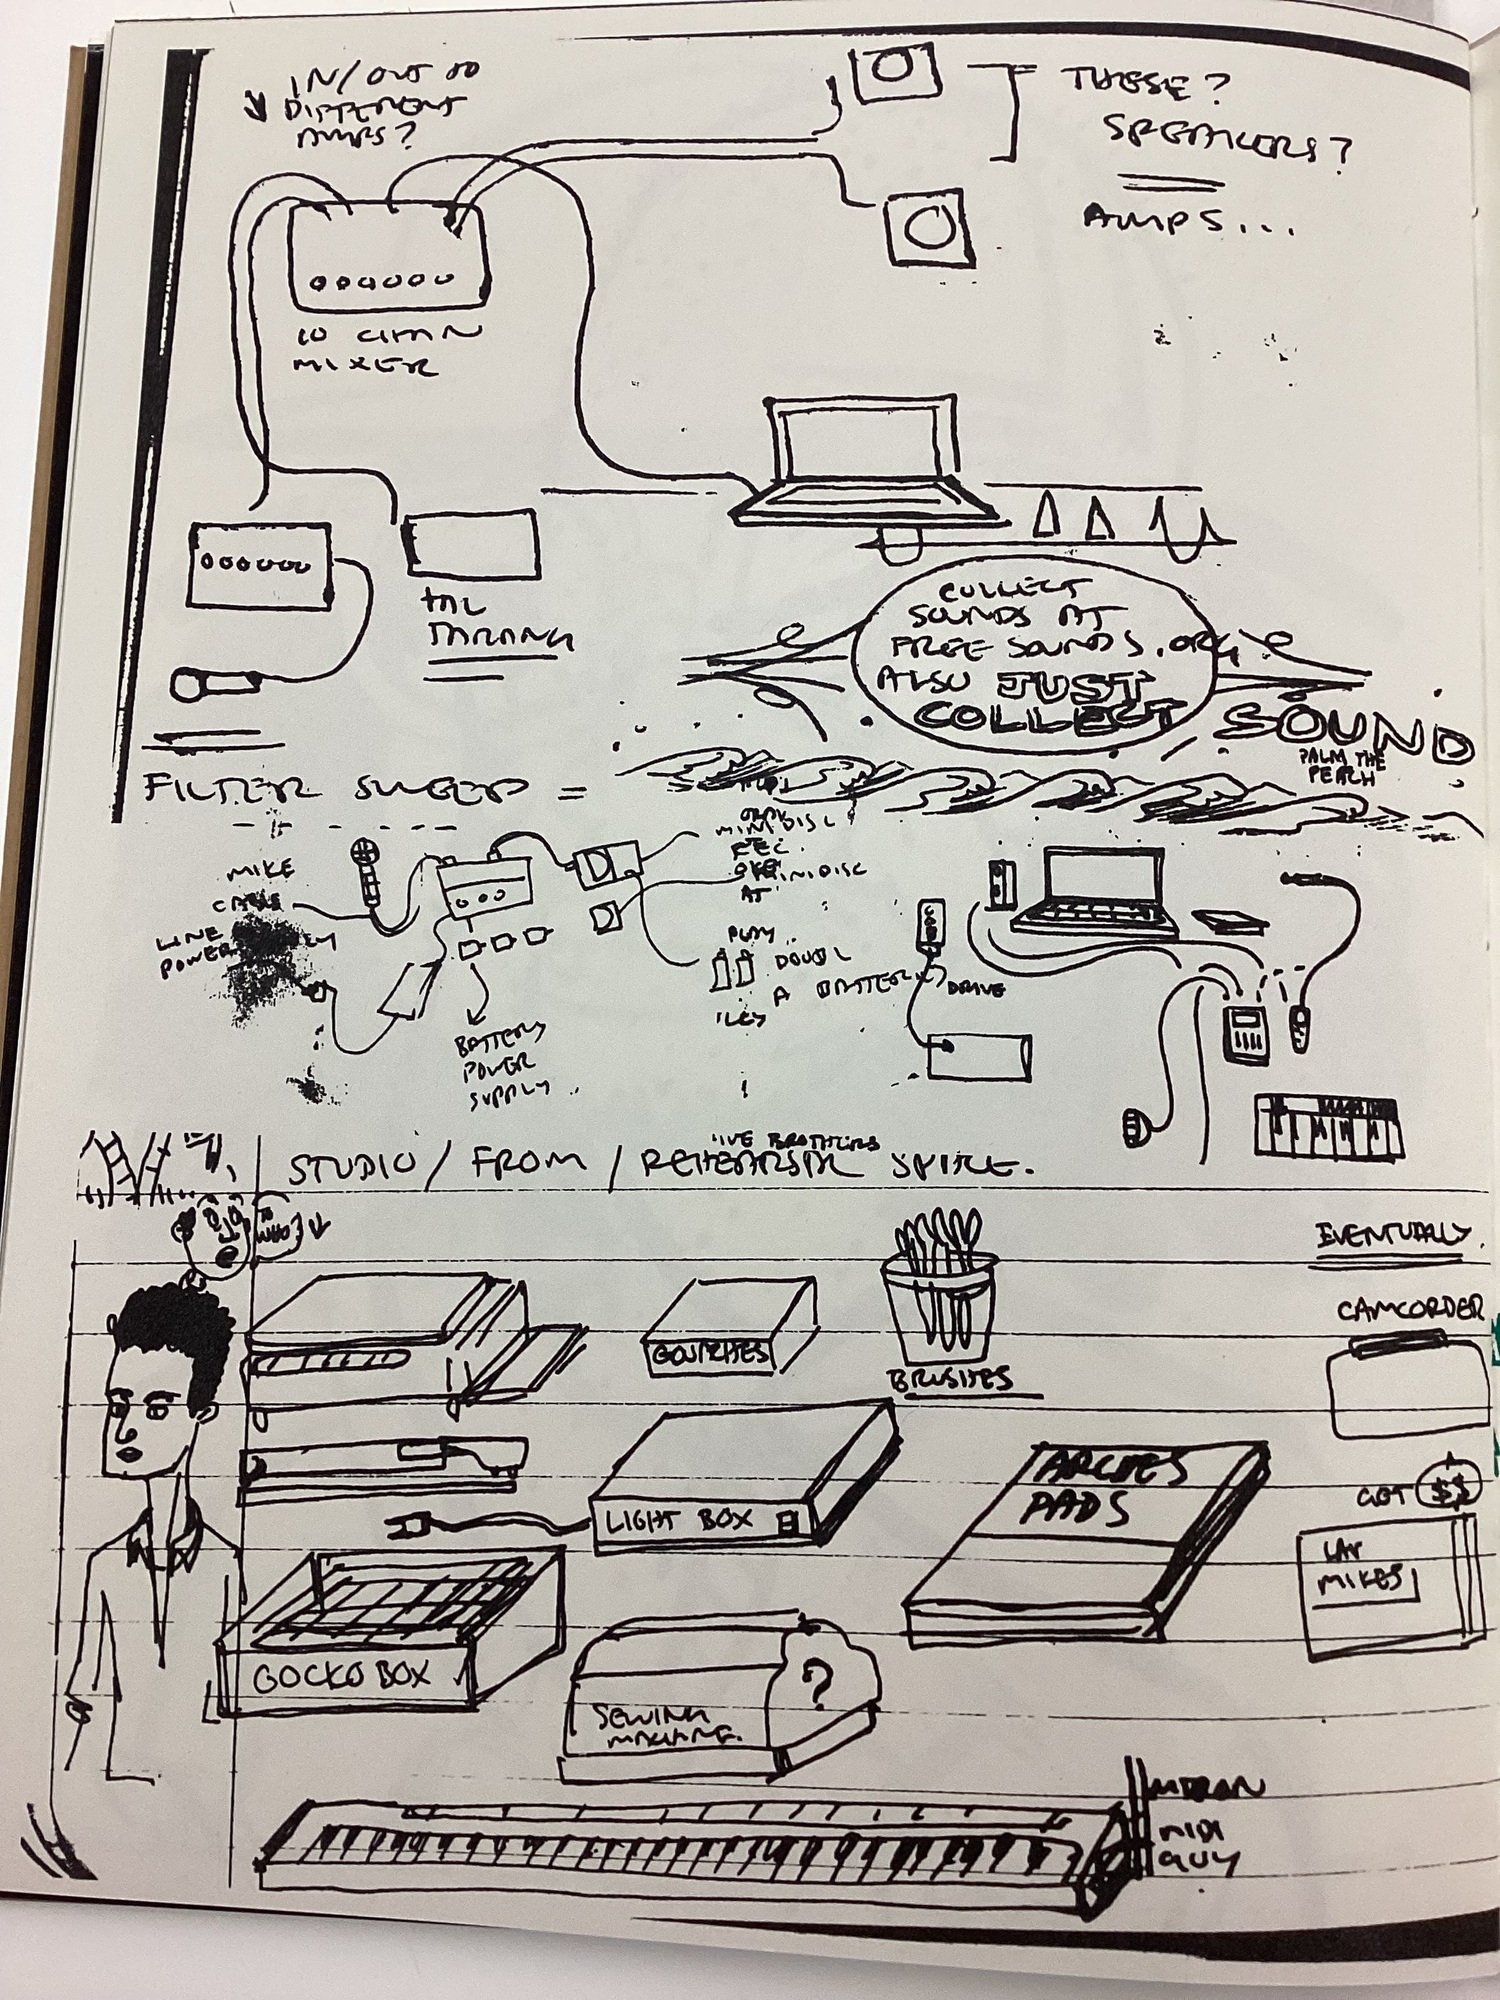 IN/OUT TO
DIFFERENT
AMPS?
THESE?
SPEAKERS?
AMPS...
10 CHAN
MIXER
TARANG
COLLECT
SOUNDS AT
FREE SOUNDS.ORG
ALSO JUST
COLLECT SOUND
PALM THE
PEACH
FILTER SWEEP =
MINIDISC
REC.
MINIDISC
AT
MIKE
CABLE
LINE
POWER
PLAY
DOUBL
A BATTERI
DRIVE
BATTERY
POWER
SUPPLY
STUDIO/FROM/REHEARSAL SPACE.
TO
WHO?
EVENTUALLY.
CAMCORDER
GOUACHES
BRUSHES
LIGHT BOX
ARCHES
PADS
GET $$
LAV
MIKES
GOCKO BOX
SEWING
MACHINE.
?
MIDI
GUY